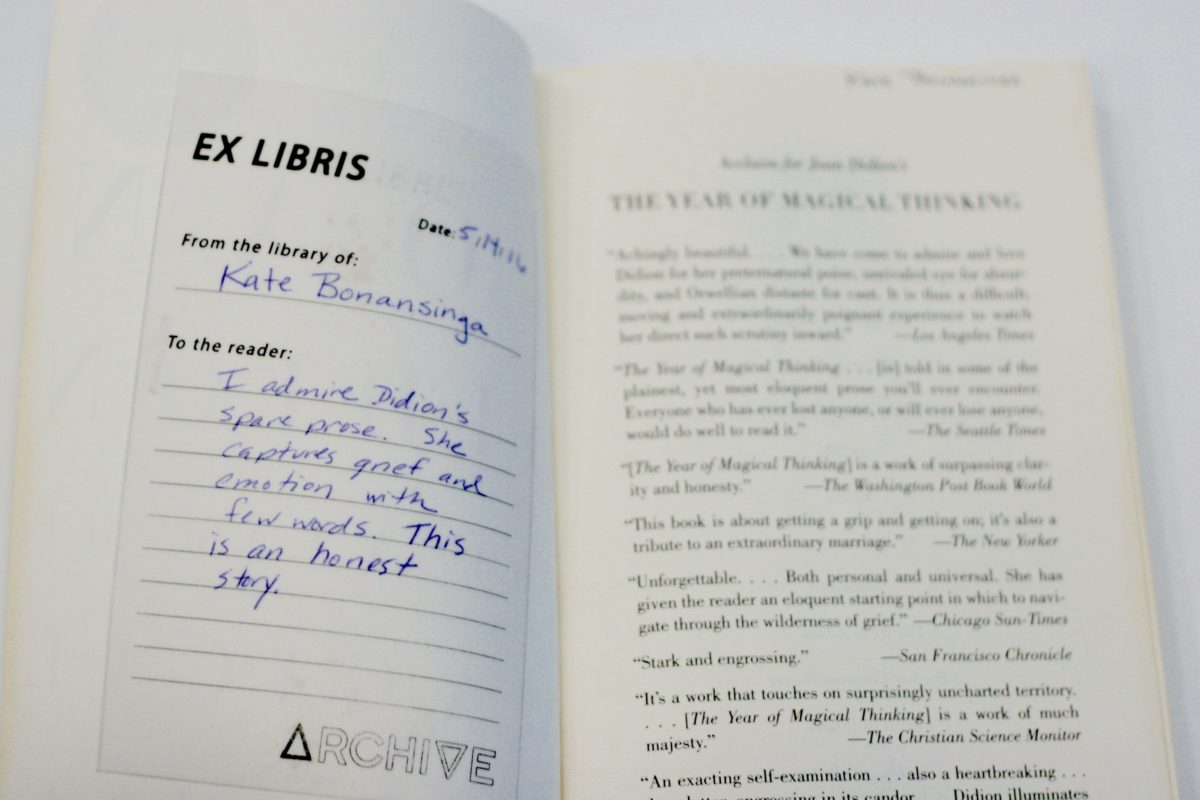 EX LIBRIS
Date: 5/14/16
From the library of:
Kate Bonansinga
To the reader:
I admire Didion's
spare prose. She
captures grief and
emotion with
few words. This
is an honest
story.
ARCHIVE
Kate Bonansinga
Acclaim for Joan Didion's
THE YEAR OF MAGICAL THINKING
“Achingly beautiful. . . . We have come to admire and love
Didion for her preternatural poise, unrivaled eye for absur-
dity, and Orwellian distaste for cant. It is thus a difficult,
moving and extraordinarily poignant experience to watch
her direct such scrutiny inward.” —Los Angeles Times
“The Year of Magical Thinking . . . [is] told in some of the
plainest, yet most eloquent prose you'll ever encounter.
Everyone who has ever lost anyone, or will ever lose anyone,
would do well to read it.” —The Seattle Times
“[The Year of Magical Thinking] is a work of surpassing clar-
ity and honesty.” —The Washington Post Book World
“This book is about getting a grip and getting on; it's also a
tribute to an extraordinary marriage.” —The New Yorker
“Unforgettable. . . . Both personal and universal. She has
given the reader an eloquent starting point in which to navi-
gate through the wilderness of grief.” —Chicago Sun-Times
“Stark and engrossing.” —San Francisco Chronicle
“It's a work that touches on surprisingly uncharted territory.
. . . [The Year of Magical Thinking] is a work of much
majesty.” —The Christian Science Monitor
“An exacting self-examination . . . also a heartbreaking . . .
engrossing in its candor. . . . Didion illuminates